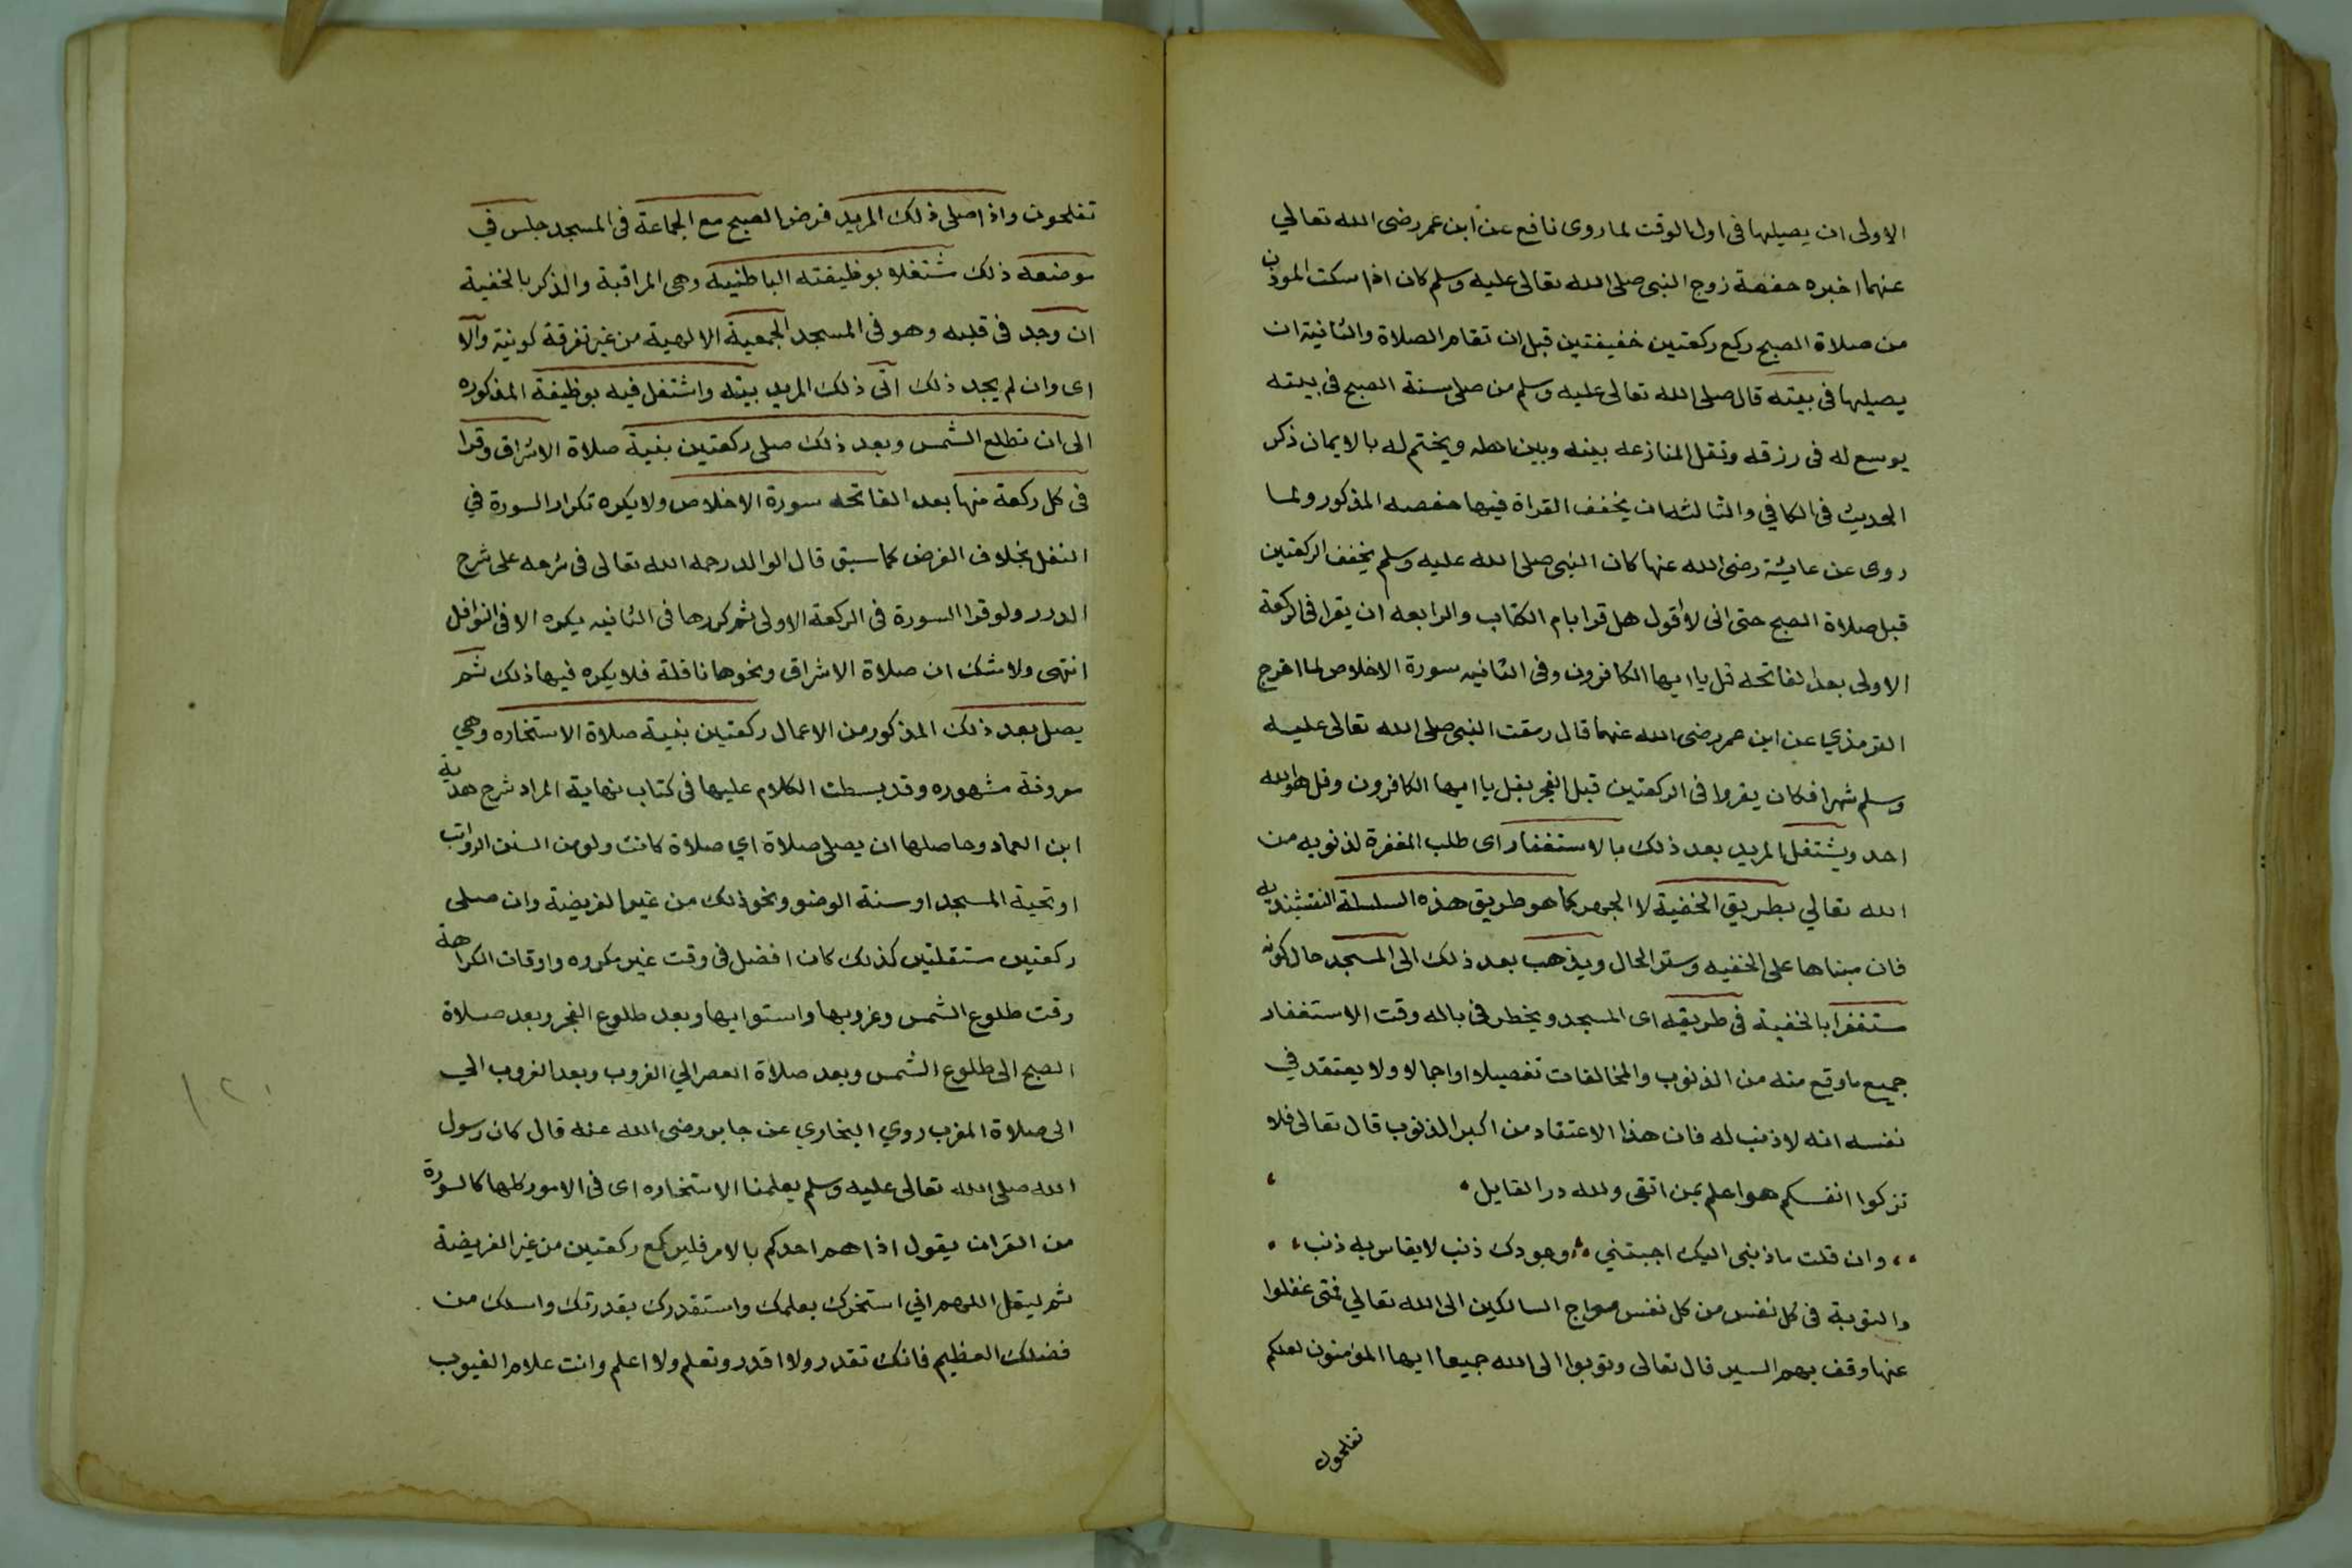 الاولى ان يصليها فى اول الوقت لما روى نافع عن ابن عمر رضى الله تعالي
عنهما اخبره حفصة زوج النبى صلى الله تعالى عليه وسلم كان اذا سكت الموذن
من صلاة الصبح ركع ركعتين خفيفتين قبل ان تقام الصلاة والثانية ان
يصليها فى بيته قال صلى الله تعالى عليه وسلم من صلى سنة الصبح فى بيته
يوسع له فى رزقه وتقل المنازعه بينه وبين اهله ويختم له بالايمان ذكر
الحديث فى الكافي والثالثه ان يخفف القراة فيها حفصه المذكور ولما
روى عن عايشة رضى الله عنها كان النبى صلى الله عليه وسلم يخفف الركعتين
قبل صلاة الصبح حتى انى لاقول هل قرا بام الكتاب والرابعه ان يقرا فى الركعة
الاولى بعد الفاتحه قل يا ايها الكافرون وفى الثانيه سورة الاخلاص لما اخرج
الترمذي عن ابن عمر رضى الله عنهما قال رمقت النبى صلى الله تعالى عليه
وسلم شهرا فكان يقروا فى الركعتين قبل الفجر بقل يا ايها الكافرون وقل هو الله
احد ويشتغل المريد بعد ذلك بالاستغفار اى طلب المغفرة لذنوبه من
الله تعالي بطريق الخفية لا الجهر كما هو طريق هذه السلسلة النقشبنديه
فان مبناها على الخفيه وستر الحال ويذهب بعد ذلك الى المسجد حال كونه
مستغفرا بالخفية فى طريقه اى المسجد ويخطر فى باله وقت الاستغفار
جميع ما وقع منه من الذنوب والمخالفات تفصيلا او اجمالا ولا يعتقد في
نفسه انه لا ذنب له فان هذا الاعتقاد من اكبر الذنوب قال تعالى فلا
تزكوا انفسكم هو اعلم بمن اتقى ولله در القايل
وان قلت ما ذنبى اليك اجبتني وجودك ذنب لا يقاس به ذنب
والتوبة فى كل نفس من كل نفس معراج السالكين الى الله تعالي فمتى غفلوا
عنها وقف بهم السير قال تعالى وتوبوا الى الله جميعا ايها المؤمنون لعلكم
تفلحون
تفلحون واذا صلى ذلك المريد فرض الصبح مع الجماعة فى المسجد جلس في
موضعه ذلك مشتغلا بوظيفته الباطنيه وهى المراقبة والذكر بالخفية
ان وجد فى قلبه وهو فى المسجد الجمعية الالهية من غير تفرقة كونية والا
اى وان لم يجد ذلك اتى ذلك المريد بيته واشتغل فيه بوظيفة المذكوره
الى ان تطلع الشمس وبعد ذلك صلى ركعتين بنية صلاة الاشراق وقرا
فى كل ركعة منها بعد الفاتحه سورة الاخلاص ولا يكره تكرار السورة في
النفل بخلاف الفرض كما سبق قال الوالد رحمه الله تعالى فى شرحه على شرح
الدرر ولو قرا السورة فى الركعة الاولى ثم كررها فى الثانيه يكره الا فى النوافل
انتهى ولا شك ان صلاة الاشراق ونحوها نافلة فلا يكره فيها ذلك ثم
يصل بعد ذلك المذكور من الاعمال ركعتين بنية صلاة الاستخاره وهي
معروفة مشهوره وقد بسطت الكلام عليها فى كتاب نهاية المراد شرح هدية
ابن العماد وحاصلها ان يصلى صلاة اي صلاة كانت ولو من السنن الرواتب
او تحية المسجد او سنة الوضو ونحو ذلك من غير الفريضة وان صلى
ركعتين مستقلتين كذلك كان افضل فى وقت غير مكروه واوقات الكراهة
وقت طلوع الشمس وغروبها واستوايها وبعد طلوع الفجر وبعد صلاة
الصبح الى طلوع الشمس وبعد صلاة العصر الي الغروب وبعد الغروب الي
الى صلاة المغرب روي البخاري عن جابر رضى الله عنه قال كان رسول
الله صلى الله تعالى عليه وسلم يعلمنا الاستخاره اى فى الامور كلها كالسورة
من القران يقول اذا هم احدكم بالامر فليركع ركعتين من غير الفريضة
ثم ليقل اللهم اني استخرك بعلمك واستقدرك بقدرتك واسلك من
فضلك العظيم فانك تقدر ولا اقدر وتعلم ولا اعلم وانت علام الغيوب